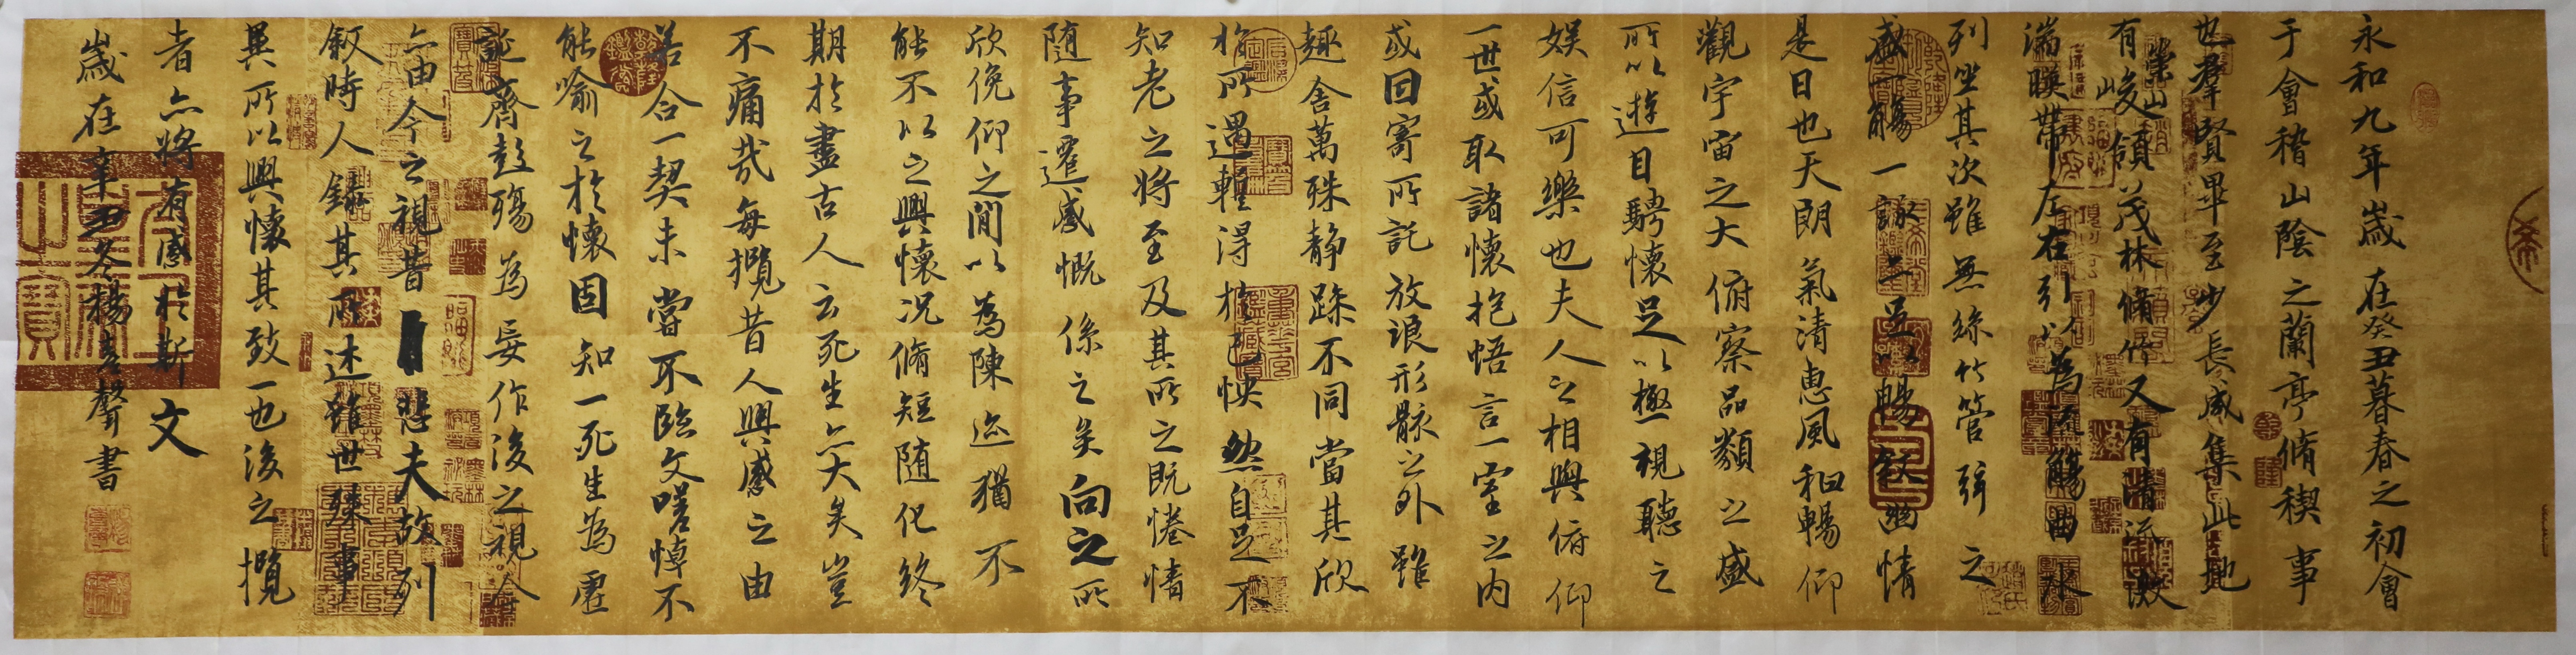 永和九年歲在癸丑暮春之初會
于會稽山陰之蘭亭脩稧事
也羣賢畢至少長咸集此地
有崇山峻領茂林脩竹又有清流激
湍暎帶左右引以為流觴曲水
列坐其次雖無絲竹管弦之
盛一觴一詠亦足以暢敘幽情
是日也天朗氣清惠風和暢仰
觀宇宙之大俯察品類之盛
所以遊目騁懷足以極視聽之
娛信可樂也夫人之相與俯仰
一世或取諸懷抱悟言一室之內
或因寄所託放浪形骸之外雖
趣舍萬殊靜躁不同當其欣
於所遇蹔得於己怏然自足不
知老之將至及其所之既惓情
隨事遷感慨係之矣向之所
欣俛仰之閒以為陳迹猶不
能不以之興懷況脩短隨化終
期於盡古人云死生亦大矣豈
不痛哉每攬昔人興感之由
若合一契未嘗不臨文嗟悼不
能喻之於懷固知一死生為虛
誕齊彭殤為妄作後之視今
亦由今之視昔悲夫故列
敘時人錄其所述雖世殊事
異所以興懷其致一也後之攬
者亦將有感於斯文
歲在辛丑冬楊書